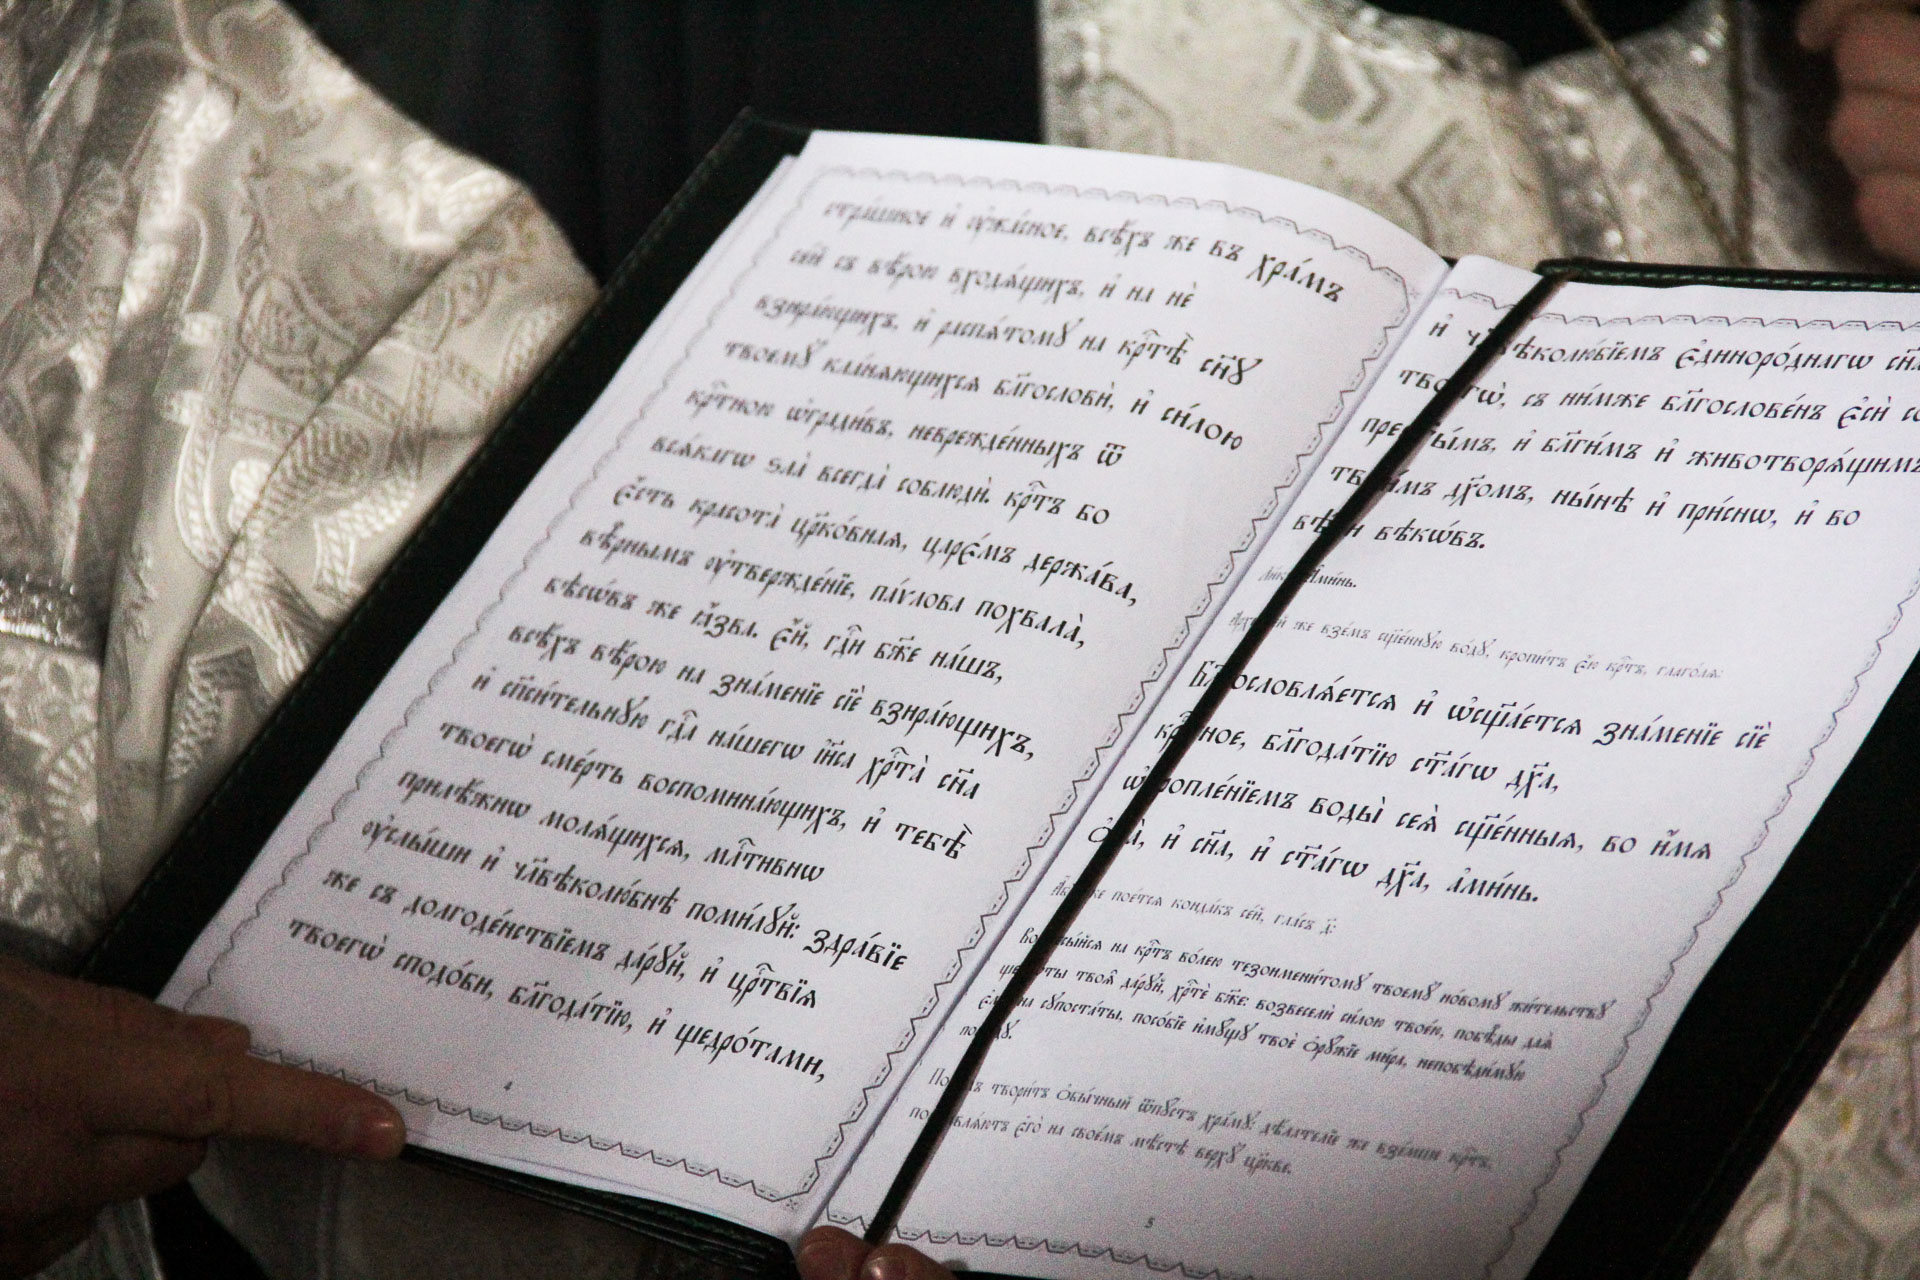 стра́шное и҆ ᲂу҆жа́сное, всѣ́хъ же въ хра́мъ
се́й съ вѣ́рою входѧ́щихъ, и҆ на нѐ
взира́ющихъ, и҆ распѧ́тому на крⷭ҇тѣ̀ сн҃ꙋ
твоемꙋ̀ кла́нѧющихсѧ бл҃гословѝ, и҆ си́лою
крⷭ҇тною ѡ҆гради́въ, невреждє́нныхъ ѿ
всѧ́кагѡ ѕла̀ всегда̀ соблюдѝ. крⷭ҇тъ бо
є҆́сть красота̀ цр҃ко́внаѧ, царє́мъ держа́ва,
вѣ̑рнымъ ᲂу҆твержде́нїе, па́ѵлова похвала̀,
бѣсѡ́въ же ꙗ҆́зва. є҆́й, гдⷭ҇и бж҃е на́шъ,
всѣ́хъ вѣ́рою на зна́менїе сїѐ взира́ющихъ,
и҆ сп҃си́тельнꙋю гдⷭ҇а на́шегѡ і҆и҃са хрⷭ҇та̀ сн҃а
твоегѡ̀ сме́рть воспомина́ющихъ, и҆ тебѣ̀
прилѣ́жнѡ молѧ́щихсѧ, млⷭ҇тивнѡ
ᲂу҆слы́ши и҆ чл҃вѣколю́бнѣ поми́лꙋй: здра́вїе
же съ долгоде́нствїемъ да́рꙋй, и҆ црⷭ҇твїѧ
твоегѡ̀ сподо́би, бл҃года́тїю, и҆ щедро́тами,
4
и҆ чл҃вѣколю́бїемъ є҆диноро́днагѡ сн҃а
твоегѡ̀, съ ни́мже бл҃гослове́нъ є҆сѝ
прест҃ы́мъ, и҆ бл҃ги́мъ и҆ животворѧ́щимъ
твои́мъ дх҃омъ, ны́нѣ и҆ при́снѡ, и҆ во
вѣ́ки вѣкѡ́въ.
Ли́къ: А҆ми́нь.
же взе́мъ сщ҃е́ннꙋю во́дꙋ, кропи́тъ є҆́ю крⷭ҇тъ, глаго́лѧ:
Бл҃гословлѧ́етсѧ и҆ ѡ҆сщ҃а́етсѧ зна́менїе сїѐ
крⷭ҇тное, бл҃года́тїю ст҃а́гѡ дх҃а,
ѡ҆кропле́нїемъ воды̀ сеѧ̀ сщ҃е́нныѧ, во и҆́мѧ
ѻ҆ц҃а̀, и҆ сн҃а, и҆ ст҃а́гѡ дх҃а, а҆ми́нь.
пое́тсѧ конда́къ се́й, гла́съ д҃:
Вознесы́йсѧ на крⷭ҇тъ во́лею тезоимени́томꙋ твоемꙋ̀ но́вомꙋ жи́тельствꙋ
щедрѡ́ты твоѧ̑ да́рꙋй, хрⷭ҇тѐ бж҃е: возвеселѝ си́лою твое́ю, побѣ̑ды даѧ̀
на сꙋпоста́ты, посо́бїе и҆мꙋ́щꙋ твоѐ ѻ҆рꙋ́жїе ми́ра, непобѣди́мꙋю
побѣ́дꙋ.
твори́тъ ѻ҆бы́чный ѿпꙋ́стъ хра́мꙋ: дѣ́лателїе же взе́мши крⷭ҇тъ,
поставлѧ́ютъ є҆го̀ на свое́мъ мѣ́стѣ верхꙋ̀ цр҃кве.
5